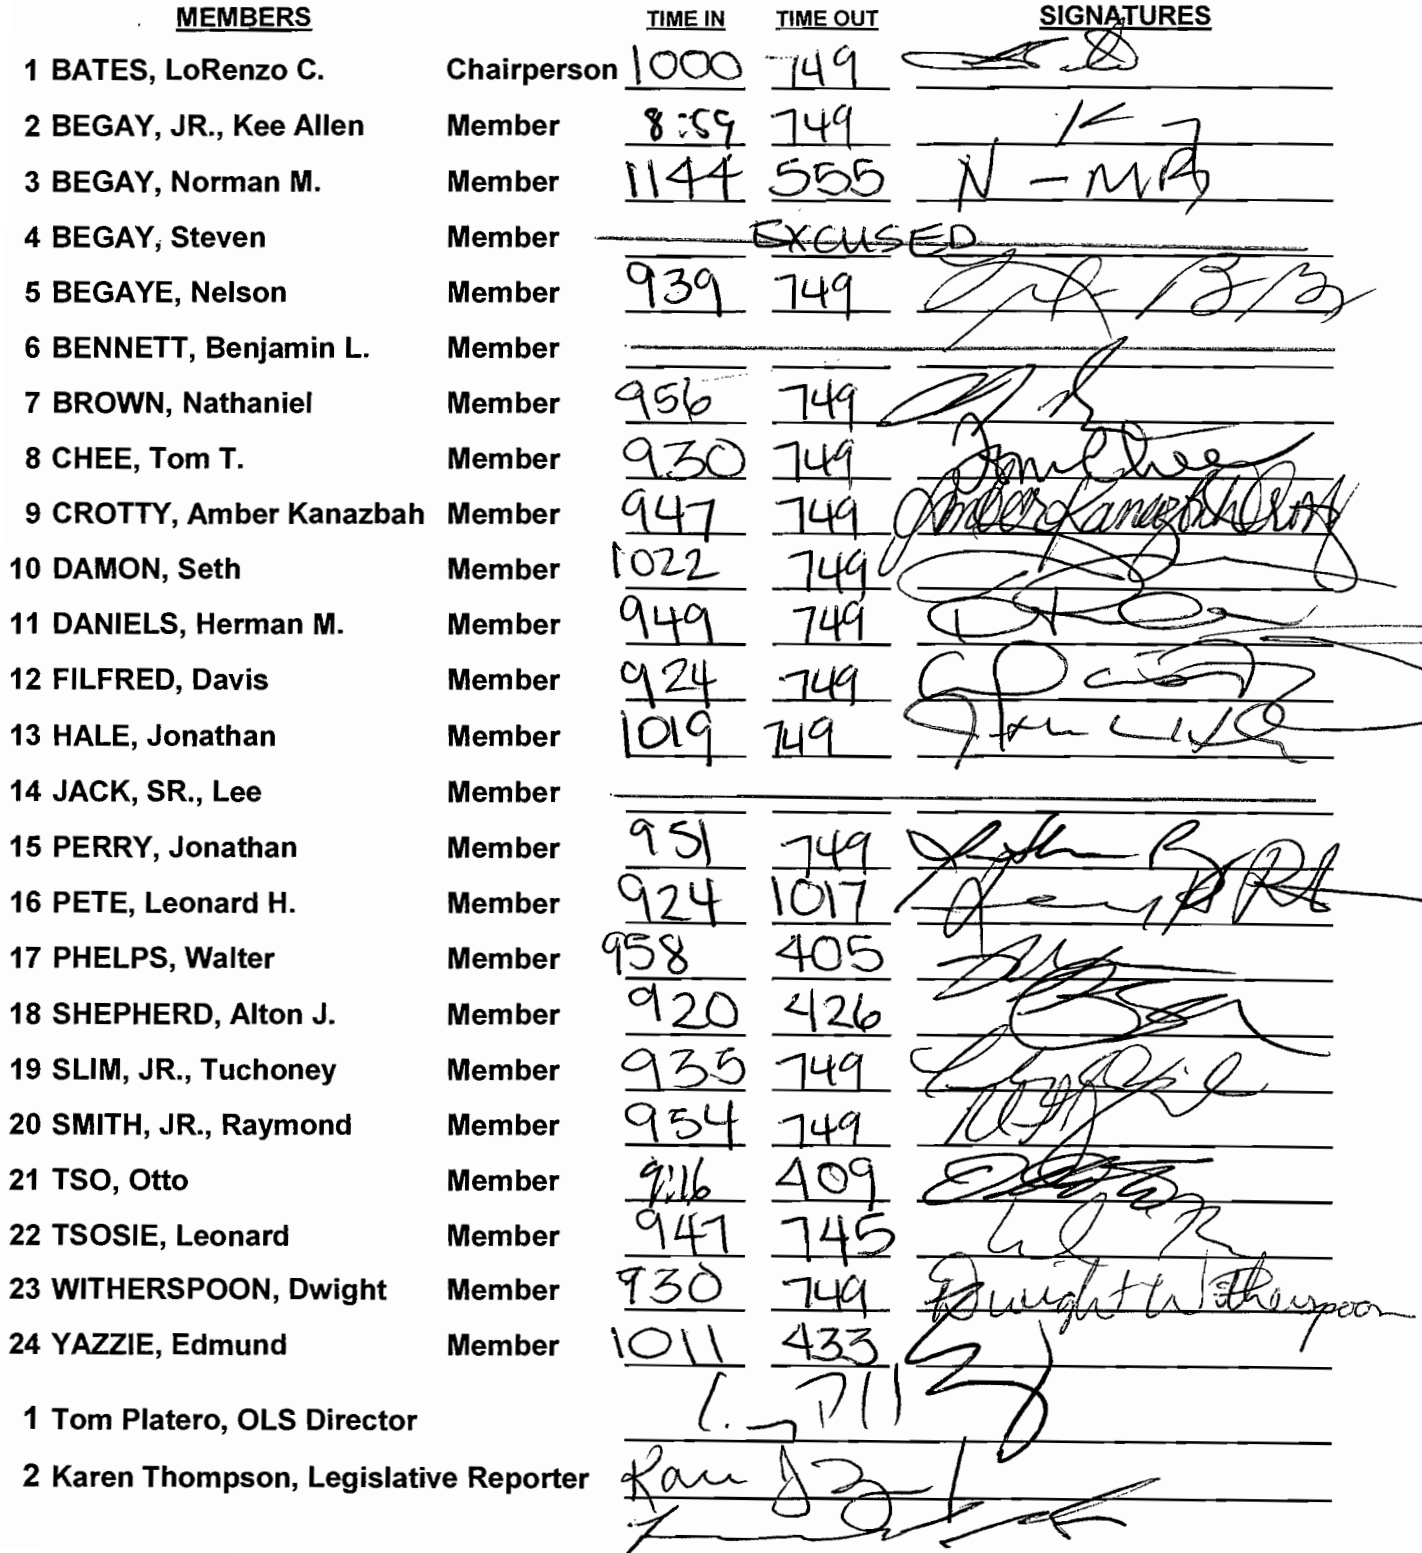 MEMBERS TIME IN TIME OUT SIGNATURES
1 BATES, LoRenzo C. Chairperson 1000 749
2 BEGAY, JR., Kee Allen Member 8:59 749
3 BEGAY, Norman M. Member 1144 555 N - MB
4 BEGAY, Steven Member EXCUSED
5 BEGAYE, Nelson Member 939 749
6 BENNETT, Benjamin L. Member
7 BROWN, Nathaniel Member 956 749
8 CHEE, Tom T. Member 930 749 Tom Chee
9 CROTTY, Amber Kanazbah Member 947 749 Amber Kanazbah Crotty
10 DAMON, Seth Member 1022 749
11 DANIELS, Herman M. Member 949 749
12 FILFRED, Davis Member 924 749
13 HALE, Jonathan Member 1019 749
14 JACK, SR., Lee Member
15 PERRY, Jonathan Member 951 749
16 PETE, Leonard H. Member 924 1017
17 PHELPS, Walter Member 958 405
18 SHEPHERD, Alton J. Member 920 426
19 SLIM, JR., Tuchoney Member 935 749
20 SMITH, JR., Raymond Member 954 749
21 TSO, Otto Member 9:16 409
22 TSOSIE, Leonard Member 947 745
23 WITHERSPOON, Dwight Member 930 749 Dwight Witherspoon
24 YAZZIE, Edmund Member 1011 433
1 Tom Platero, OLS Director
2 Karen Thompson, Legislative Reporter